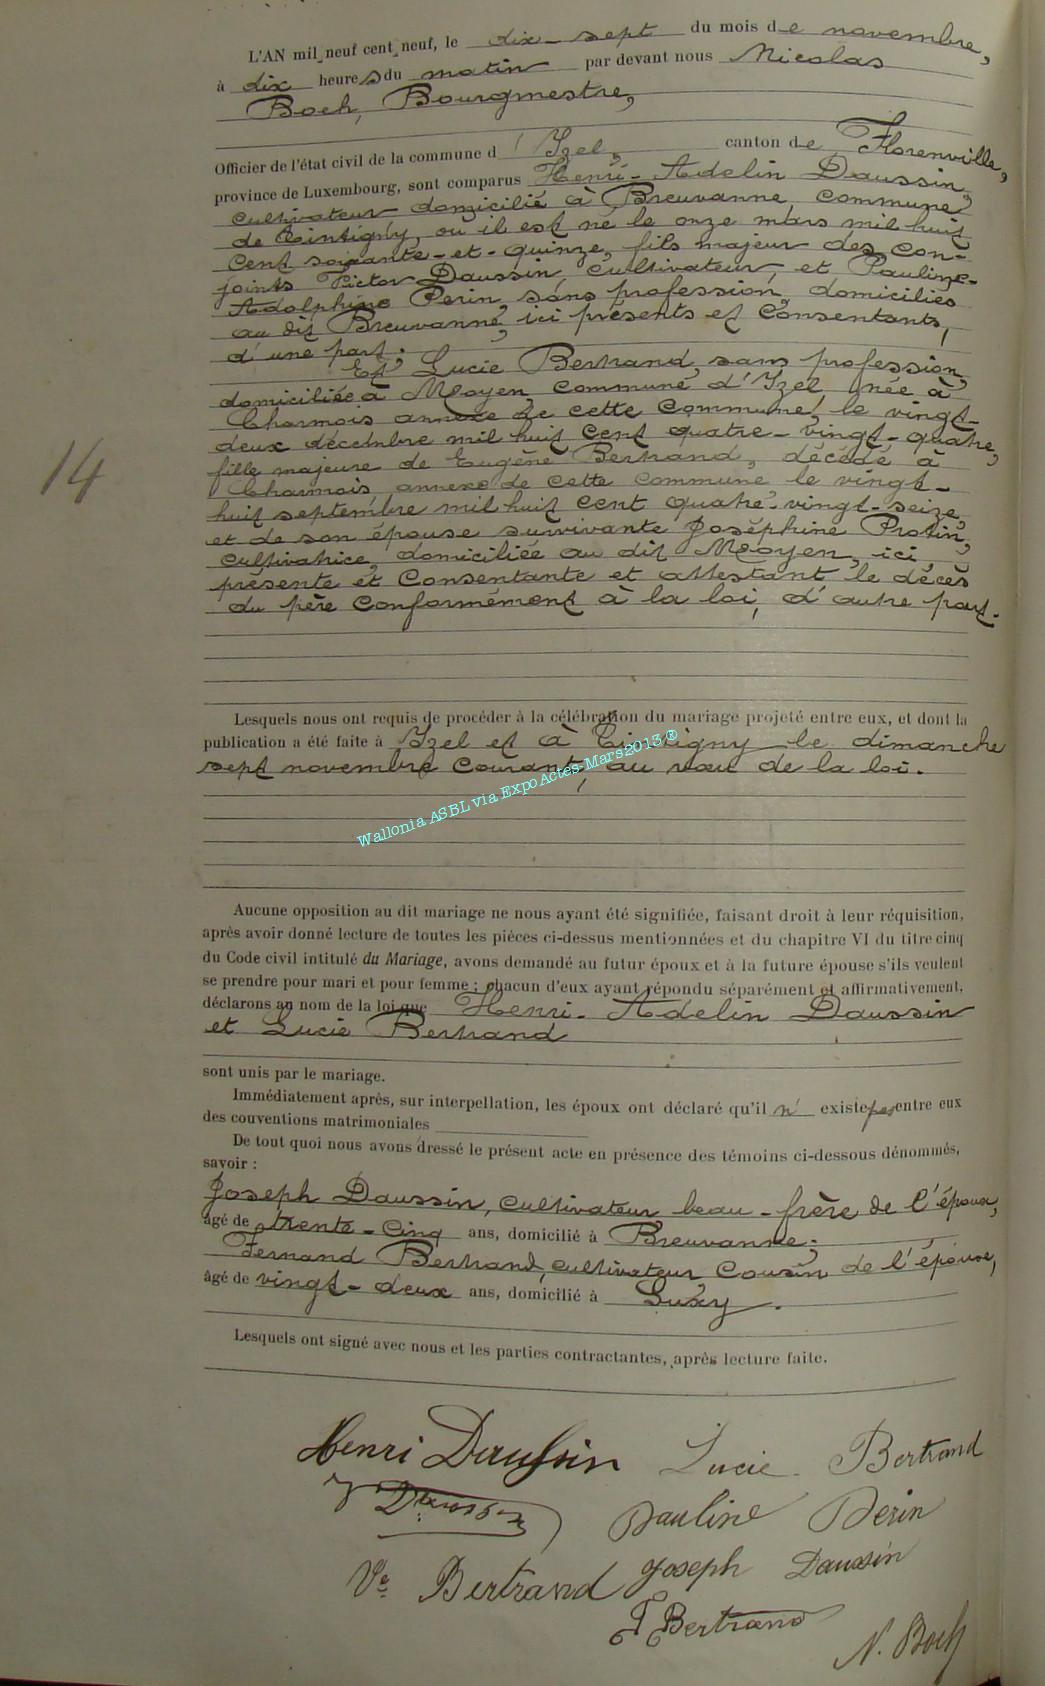 L'AN mil neuf cent neuf, le dix-sept du mois de novembre,
à dix heures du matin par devant nous Nicolas
Boch, Bourgmestre,
Officier de l'état civil de la commune d'Izel, canton de Florenville,
province de Luxembourg, sont comparus Henri-Adelin Daussin,
cultivateur domicilié à Breuvanne, commune
de Tintigny, où il est né le onze mars mil huit
cent soixante-et-quinze, fils majeur des con-
joints Victor Daussin, cultivateur, et Pauline-
Adolphine Perin, sans profession, domiciliés
au dit Breuvanne, ici présents et consentants,
d'une part.
Et Lucie Bertrand, sans profession,
domiciliée à Moyen, commune d'Izel, née à
Charmois annexe de cette commune, le vingt-
deux décembre mil huit cent quatre-vingt-quatre,
fille majeure de Eugène Bertrand, décédé à
Charmois, annexe de cette commune le vingt-
14
huit septembre mil huit cent quatre-vingt-seize,
et de son épouse survivante Joséphine Protin,
cultivatrice, domiciliée au dit Moyen, ici
présente et consentante et attestant le décès
du père conformément à la loi, d'autre part.
Lesquels nous ont requis de procéder à la célébration du mariage projeté entre eux, et dont la
publication a été faite à Izel et à Tintigny le dimanche
sept novembre courant, au vœu de la loi.
Wallonia ASBL via ExpoActes-Mars2013®
Aucune opposition au dit mariage ne nous ayant été signifiée, faisant droit à leur réquisition,
après avoir donné lecture de toutes les pièces ci-dessus mentionnées et du chapitre VI du titre cinq
du Code civil intitulé du Mariage, avons demandé au futur époux et à la future épouse s'ils veulent
se prendre pour mari et pour femme : chacun d'eux ayant répondu séparément et affirmativement,
déclarons au nom de la loi que Henri-Adelin Daussin
et Lucie Bertrand
sont unis par le mariage.
Immédiatement après, sur interpellation, les époux ont déclaré qu'il n' existe pas entre eux
des conventions matrimoniales
De tout quoi nous avons dressé le présent acte en présence des témoins ci-dessous dénommés,
savoir :
Joseph Daussin, cultivateur beau-frère de l'époux,
âgé de trente-cinq ans, domicilié à Breuvanne;
Fernand Bertrand, cultivateur, cousin de l'épouse,
âgé de vingt-deux ans, domicilié à Suxy.
Lesquels ont signé avec nous et les parties contractantes, après lecture faite.
Henri Daussin Lucie Bertrand
V Daussin Pauline Perin
Ve Bertrand Joseph Daussin
F Bertrand
N. Boch